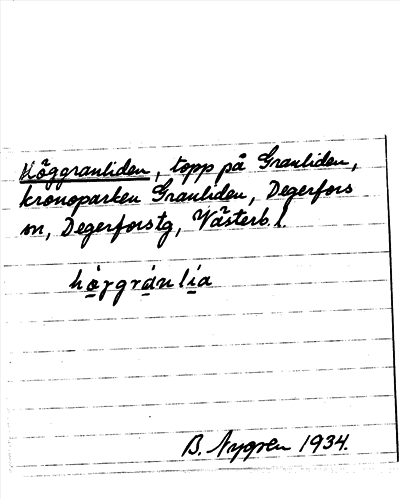 Höggranliden, topp på Granliden,
kronoparken Granliden, Degerfors
sn, Degerforstg, Västerb. l.
hö̱grá̱nlí̱a
B. Nygren 1934.